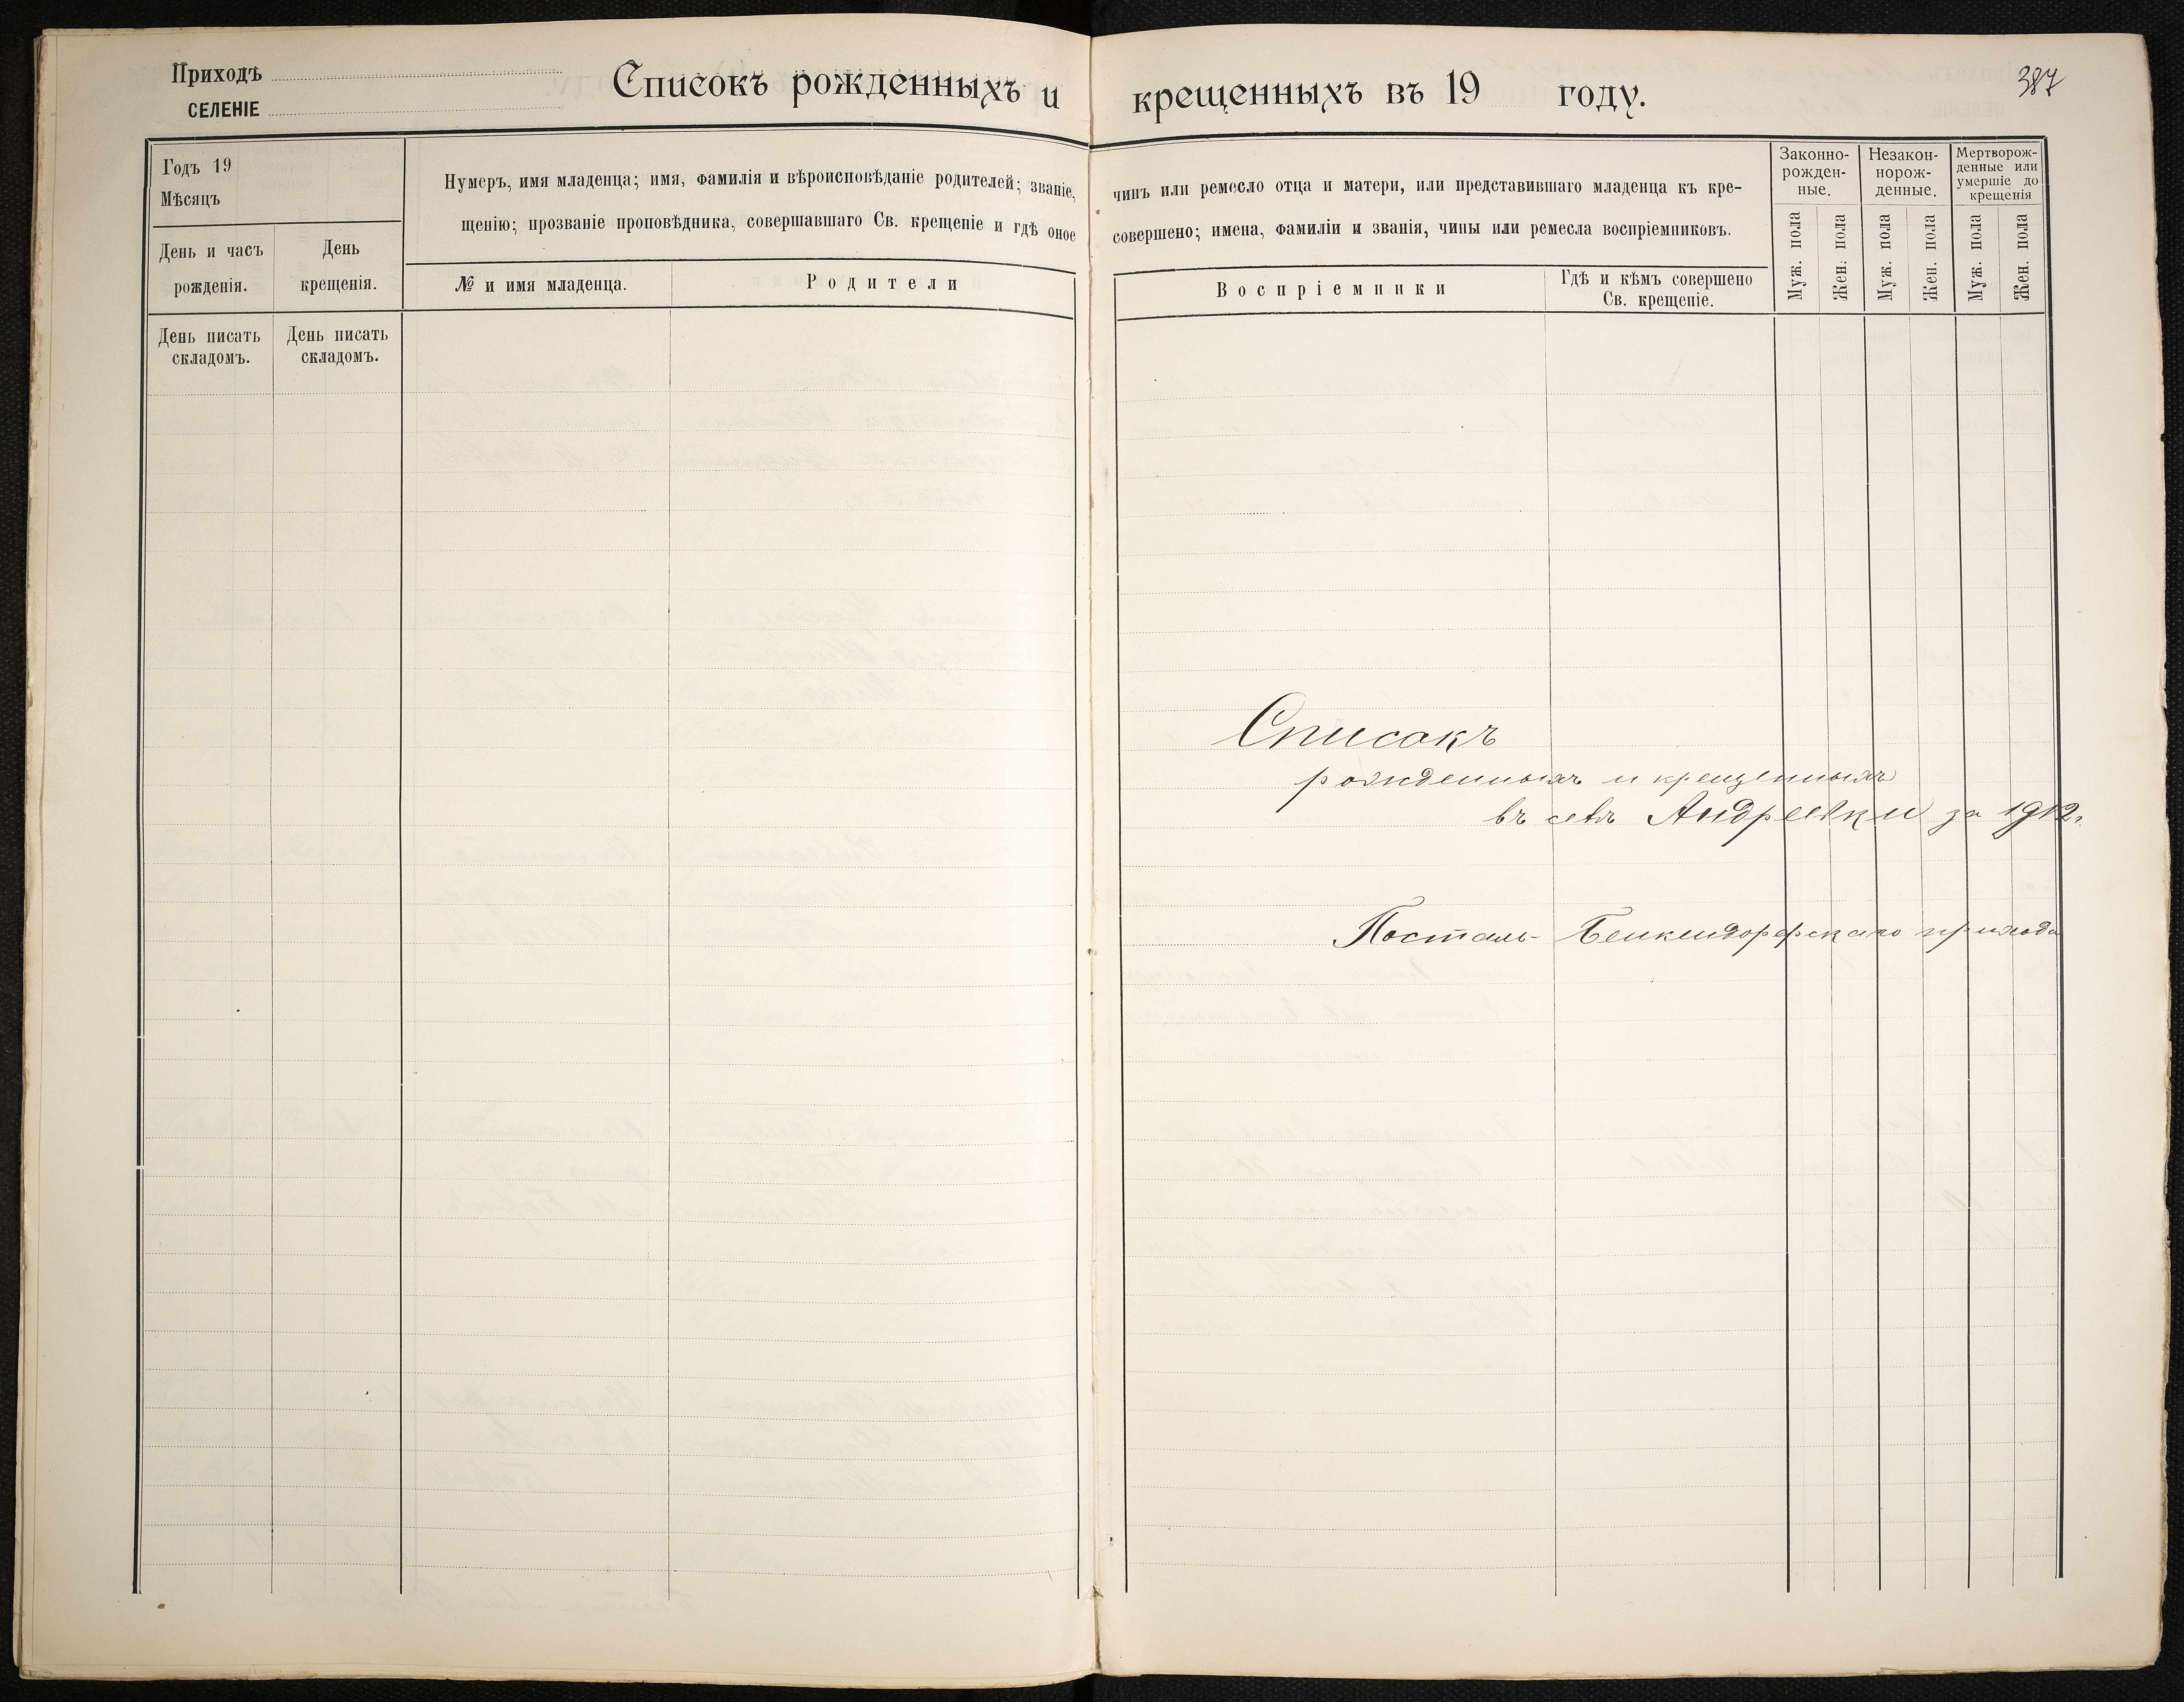 Приходъ
СЕЛЕНІЕ
Списокъ рожденныхъ и крещенныхъ въ 19 году.
387
Годъ 19
Мѣсяцъ
День и часъ
рожденія.
День
крещенія.
Нумеръ, имя младенца; имя, фамилія и вѣроисповѣданіе родителей; званіе, чинъ или ремесло отца и матери, или представившаго младенца къ кре-
щенію; прозваніе проповѣдника, совершавшаго Св. крещеніе и гдѣ оное совершено; имена, фамиліи и званія, чины или ремесла воспріемниковъ.
№ и имя младенца.
Родители
Воспріемники
Гдѣ и кѣмъ совершено
Св. крещеніе.
Законно-
рожден-
ные.
Незакон-
норож-
денные.
Мертворож-
денные или
умершіе до
крещенія
Муж. пола
Жен. пола
Муж. пола
Жен. пола
Муж. пола
Жен. пола
День писать
складомъ.
День писать
складомъ.
Списокъ
рожденныхъ и крещенныхъ
въ Андреевки за 1912.
Посталь-Бенкендорфскаго прихода